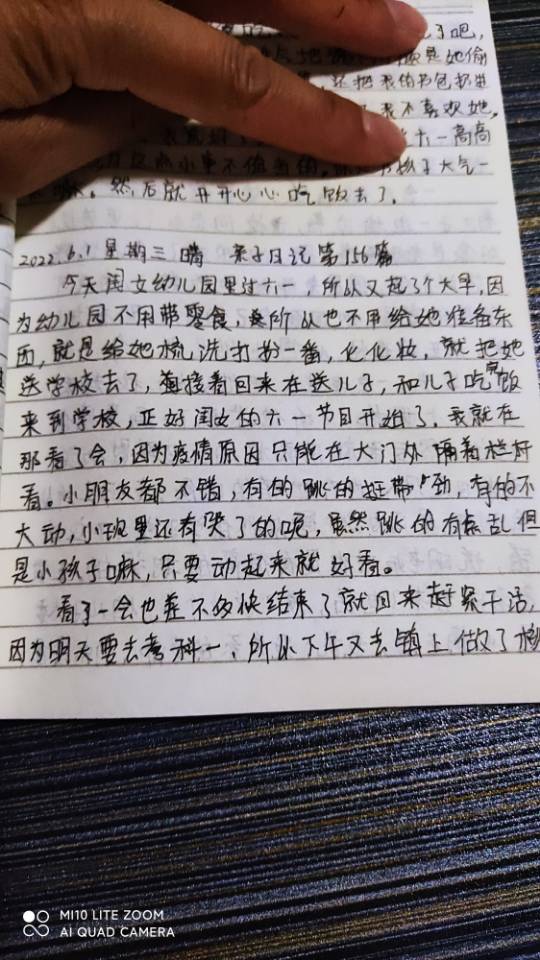 了吧，
是她偷
还把我的书包扔进
我不喜欢她，
六一高高
小事不值当的，
孩子大气一
嘛。然后就开开心心吃饭去了。
2022.6.1 星期三 晴 亲子日记 第156篇
今天闺女幼儿园里过六一，所以又起了个大早，因
为幼儿园不用带零食，所以也不用给她准备东
西，就是给她梳洗打扮一番，化化妆，就把她
送学校去了，直接着回来在送儿子，和儿子吃完饭
来到学校，正好闺女的六一节目开始了，我就在
那看了会，因为疫情原因只能在大门外隔着栏杆
看。小朋友都不错，有的跳的挺带劲，有的不
大动，小班里还有哭了的呢，虽然跳的有点乱但
是小孩子嘛，只要动起来就好看。
看了一会也差不多快结束了就回来赶紧干活，
因为明天要去考科一，所以下午又去镇上做了核
MI10 LITE ZOOM
AI QUAD CAMERA